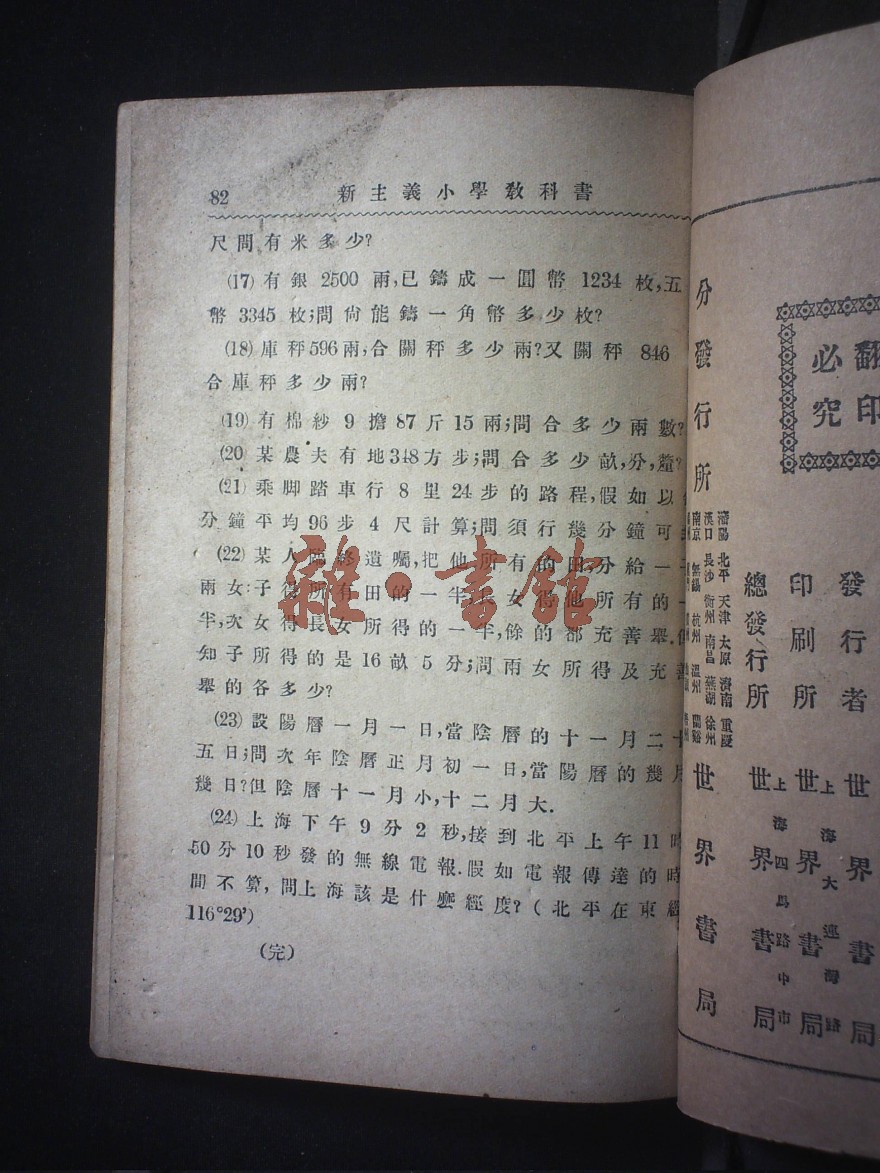 82 新主義小學教科書
尺問有米多少?
(17)有銀2500兩,已鑄成一圓幣1234枚,五
幣3345枚;問尙能鑄一角幣多少枚?
(18)庫秤596兩,合關秤多少兩?又關秤846
合庫秤多少兩?
(19)有棉紗9擔87斤15兩;問合多少兩數?
(20)某農夫有地348方步;問合多少畝,分,釐?
(21)乘脚踏車行8里24步的路程,假如以
分鐘平均96步4尺計算;問須行幾分鐘可
(22)某人臨終遺囑,把他所有的田分給一子
兩女:子得所有田的一半,長女得他所有的一
半,次女得長女所得的一半,餘的都充善舉.
知子所得的是16畝5分;問兩女所得及充善
舉的各多少?
(23)設陽曆一月一日,當陰曆的十一月二十
五日;問次年陰曆正月初一日,當陽曆的幾月
幾日?但陰曆十一月小,十二月大.
(24)上海下午9分2秒,接到北平上午11時
50分10秒發的無線電報.假如電報傳達的時
間不算,問上海該是什麼經度?(北平在東經
116°29′)
(完)
雜·書館
翻印
必究
發行者 世界書局
印刷所 上海大連灣路 世界書局
總發行所 上海四馬路中市 世界書局
分發行所 世界書局
瀋陽 北平 天津 太原 濟南 重慶
漢口 長沙 衡州 南昌 蕪湖 徐州
南京 無錫 杭州 溫州 蘭谿